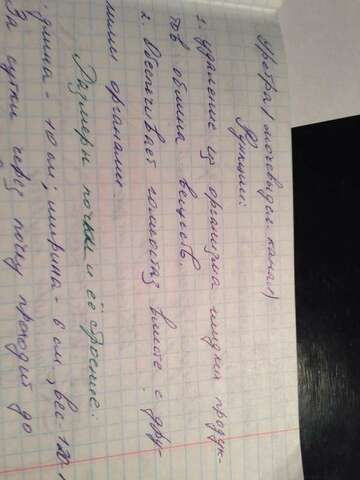 Уретра (мочевыдел. канал)
Функции:
1. удаление из организма жидких продук-
тов обмена веществ.
2. обеспечивает гомеостаз вместе с дру-
гими органами.
Размеры почки и её строение:
длина - 10 см; ширина - 6 см, вес 120-
За сутки через почку проходит до